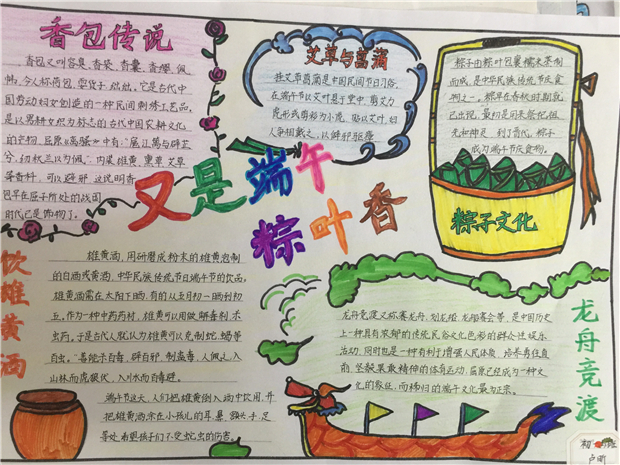 香包传说
香包又叫容臭、香袋、香囊、香缨、佩
帏,今人称荷包、耍货子、绌绌,它是古代中
国劳动妇女创造的一种民间刺绣工艺品,
是以男耕女织为标志的古代中国农耕文化
的产物,屈原《离骚》中有:"扈江篱与辟芷
兮,纫秋兰以为佩",内装雄黄,熏草,艾草
等香料,可以避邪。这说明香
包早在屈原所处的战国
时代已是饰物了。
艾草与菖蒲
挂艾草菖蒲是中国民间节日习俗,
在端午节以艾叶悬于堂中,剪艾为
虎形或剪彩为小虎,贴以艾叶,妇
人争相戴之,以僻邪驱瘴
粽子由粽叶包裹糯米蒸制
而成,是中华民族传统节庆食
物之一,粽早在春秋时期就
已出现,最初是用来祭祀祖
先和神灵,到了晋代,粽子
成为端午节庆食物。
粽子文化
又是端午
粽叶香
饮雄黄酒
雄黄酒,用研磨成粉末的雄黄泡制
的白酒或黄酒,中华民族传统节日端午节的饮品,
雄黄酒需在太阳下晒,有的从五月初一晒到初
五,作为一种中药药材,雄黄可以用做解毒剂、杀
虫药,于是古代人就认为雄黄可以克制蛇、蝎等
百虫,"善能杀百毒、辟百邪、制蛊毒,人佩之,入
山林而虎狼伏,入川水而百毒避。
端午节这天,人们把雄黄倒入酒中饮用,并
把雄黄酒涂在小孩儿的耳、鼻、额头、手、足
等处,希望孩子们不受蛇虫的伤害。
龙舟竞渡
龙舟竞渡又称赛龙舟、划龙船、龙船赛会等,是中国历史
上一种具有浓郁的传统民俗文化色彩的群众性娱乐
活动,同时也是一种有利于增强人民体质,培养勇往直
前,坚毅果敢精神的体育运动,屈原已经成为一种文
化的象征,而秭归的端午文化最为正宗。